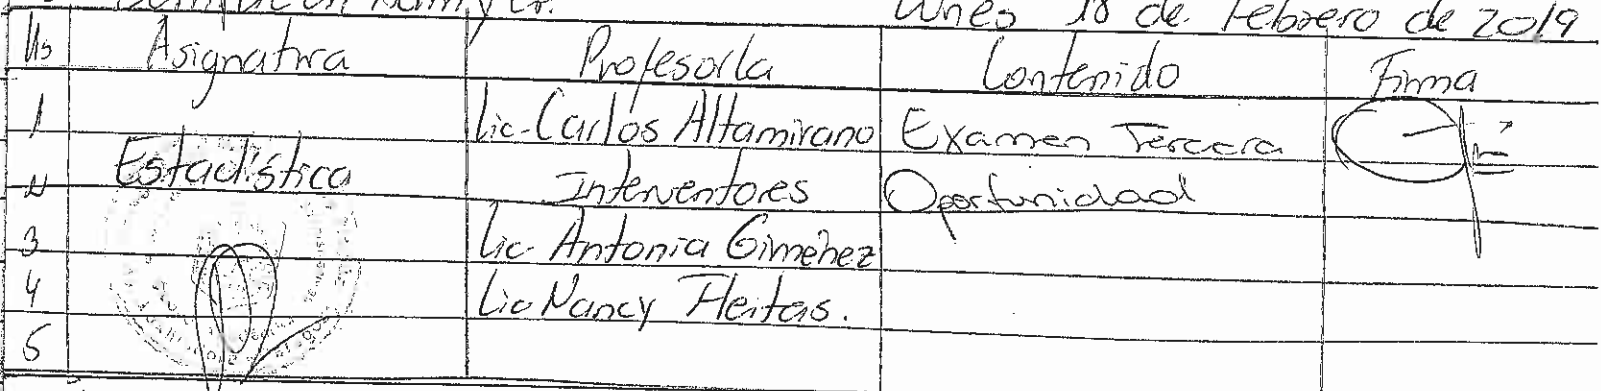 Lunes 18 de Febrero de 2019
Hs Asignatura Profesor/a Contenido Firma
1 Lic. Carlos Altamirano Examen Tercera
Estadística
2 Interventores Oportunidad
3 Lic Antonia Gimenez
4 Lic Nancy Fleitas.
5